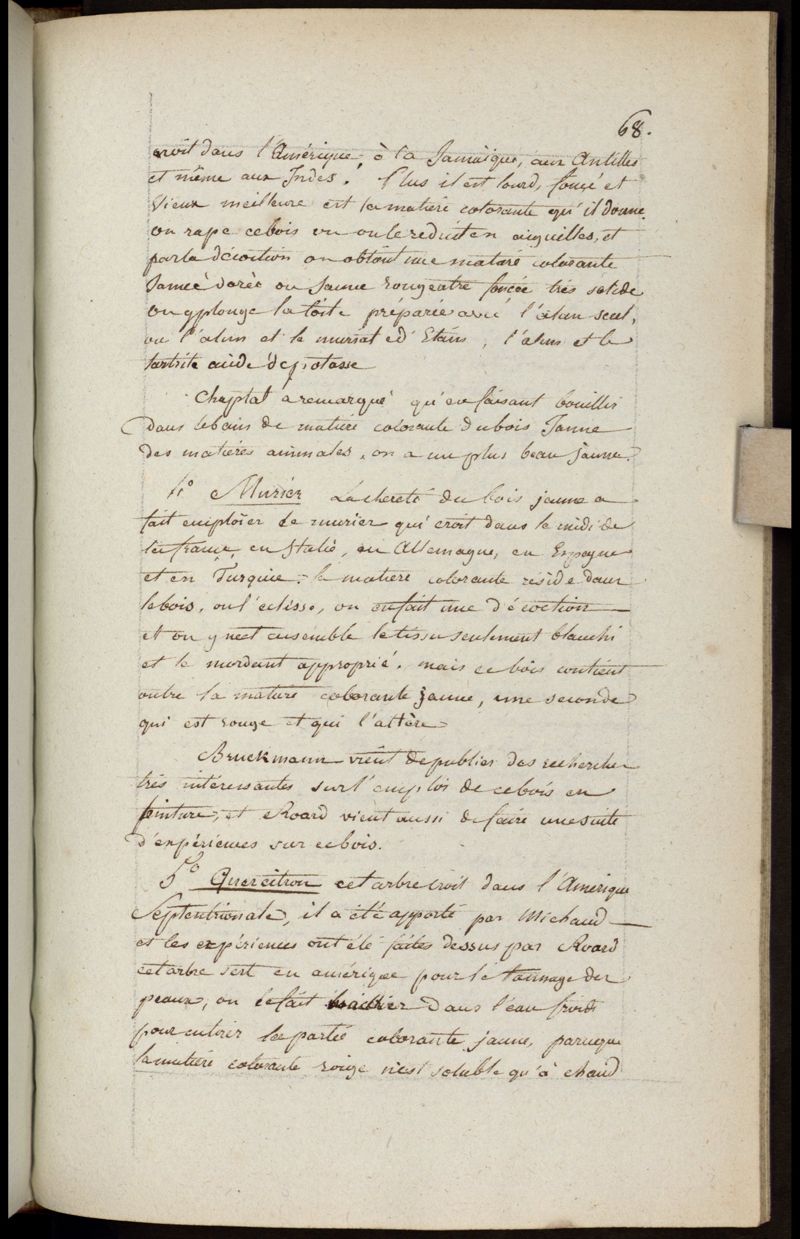 68.
croit dans l'Amérique, à la Jamaïque, aux Antilles
et même aux Indes. Plus il est lourd, foncé et
vieux meilleure est la matiere colorante qu'il donne.
on rape ce bois ou on le reduit en aiguilles, et
par la décoction on obtient une matiere colorante
dorée ou jaune rougeatre foncée très solide
on y plonge la toile préparée avec l'alun seul,
ou l'alun et le muriate d'Etain, l'alun et le
tartrite acide de potasse
Chaptal a remarqué qu'en faisant bouillir
dans le bain de matiere colorante du bois Jaune
des matieres animales, on a un plus beau jaune.
4° Murier La cherté du bois jaune a
fait emploïer le murier qui croit dans le midi de
la france, en Italie, en Allemagne, en Espagne
et en Turquie. la matiere colorante réside dans
le bois, on l'eclisse, on en fait une décoction
et on y met ensemble le tissu seulement blanchi
et le mordant approprié. mais ce bois contient
outre la matiere colorante jaune, une seconde
qui est rouge et qui l'altère
Bruckmann vient de publier des recherches
très intéressantes sur l'emploi de ce bois en
teinture, et Roard vient aussi de faire une suite
d'expériences sur ce bois.
5° Quercitron cet arbre croit dans l'Amérique
Septentrionale, il a été apporté par Michaud
et les expériences ont été faites dessus par Roard
cet arbre sert en amérique pour le tannage des
peaux, on le fait dans l'eau froide
pour enlever la partie colorante jaune, parceque
la matiere colorante rouge n'est soluble qu'à chaud